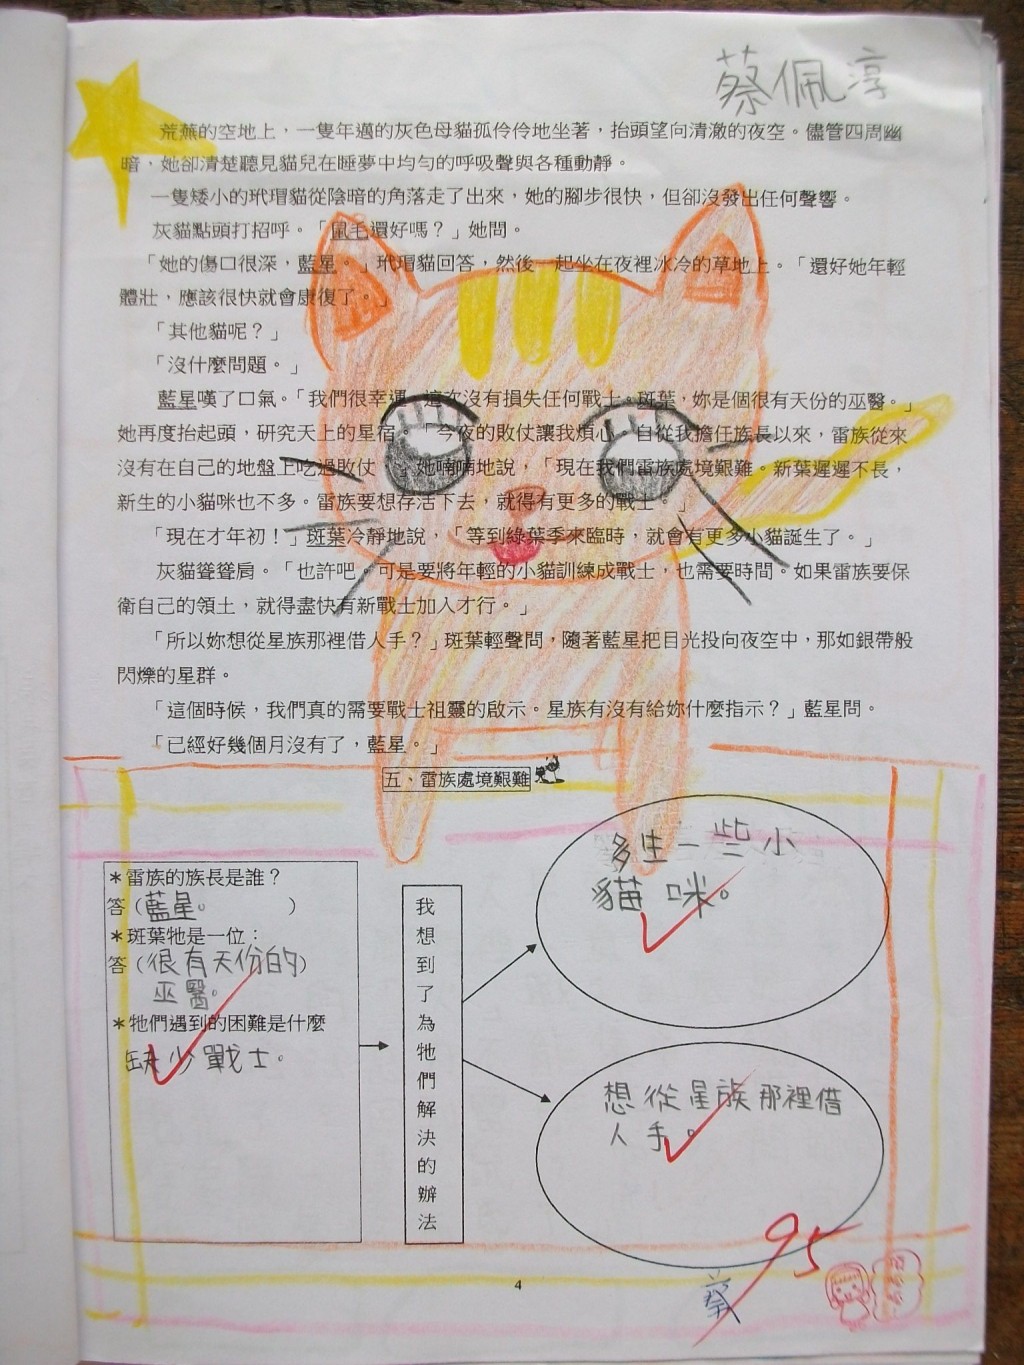 蔡佩淳
荒蕪的空地上，一隻年邁的灰色母貓孤伶伶地坐著，抬頭望向清澈的夜空。儘管四周幽
暗，她卻清楚聽見貓兒在睡夢中均勻的呼吸聲與各種動靜。
一隻矮小的玳瑁貓從陰暗的角落走了出來，她的腳步很快，但卻沒發出任何聲響。
灰貓點頭打招呼。「鼠毛還好嗎？」她問。
「她的傷口很深，藍星。」玳瑁貓回答，然後一起坐在夜裡冰冷的草地上。「還好她年輕
體壯，應該很快就會康復了。」
「其他貓呢？」
「沒什麼問題。」
藍星嘆了口氣。「我們很幸運，這次沒有損失任何戰士。斑葉，妳是個很有天份的巫醫。」
她再度抬起頭，研究天上的星宿。「今夜的敗仗讓我煩心，自從我擔任族長以來，雷族從來
沒有在自己的地盤上吃過敗仗。」她喃喃地說，「現在我們雷族處境艱難。新葉遲遲不長，
新生的小貓咪也不多。雷族要想存活下去，就得有更多的戰士。」
「現在才年初！」斑葉冷靜地說，「等到綠葉季來臨時，就會有更多小貓誕生了。」
灰貓聳聳肩。「也許吧。可是要將年輕的小貓訓練成戰士，也需要時間。如果雷族要保
衛自己的領土，就得盡快有新戰士加入才行。」
「所以妳想從星族那裡借人手？」斑葉輕聲問，隨著藍星把目光投向夜空中，那如銀帶般
閃爍的星群。
「這個時候，我們真的需要戰士祖靈的啟示。星族有沒有給妳什麼指示？」藍星問。
「已經好幾個月沒有了，藍星。」
五、雷族處境艱難
＊雷族的族長是誰？
答（藍星。）
＊斑葉牠是一位：
答（很有天份的）
巫醫。
＊牠們遇到的困難是什麼
缺少戰士。
我想到了為牠們解決的辦法
多生一些小
貓咪。
想從星族那裡借
人手。
95
4